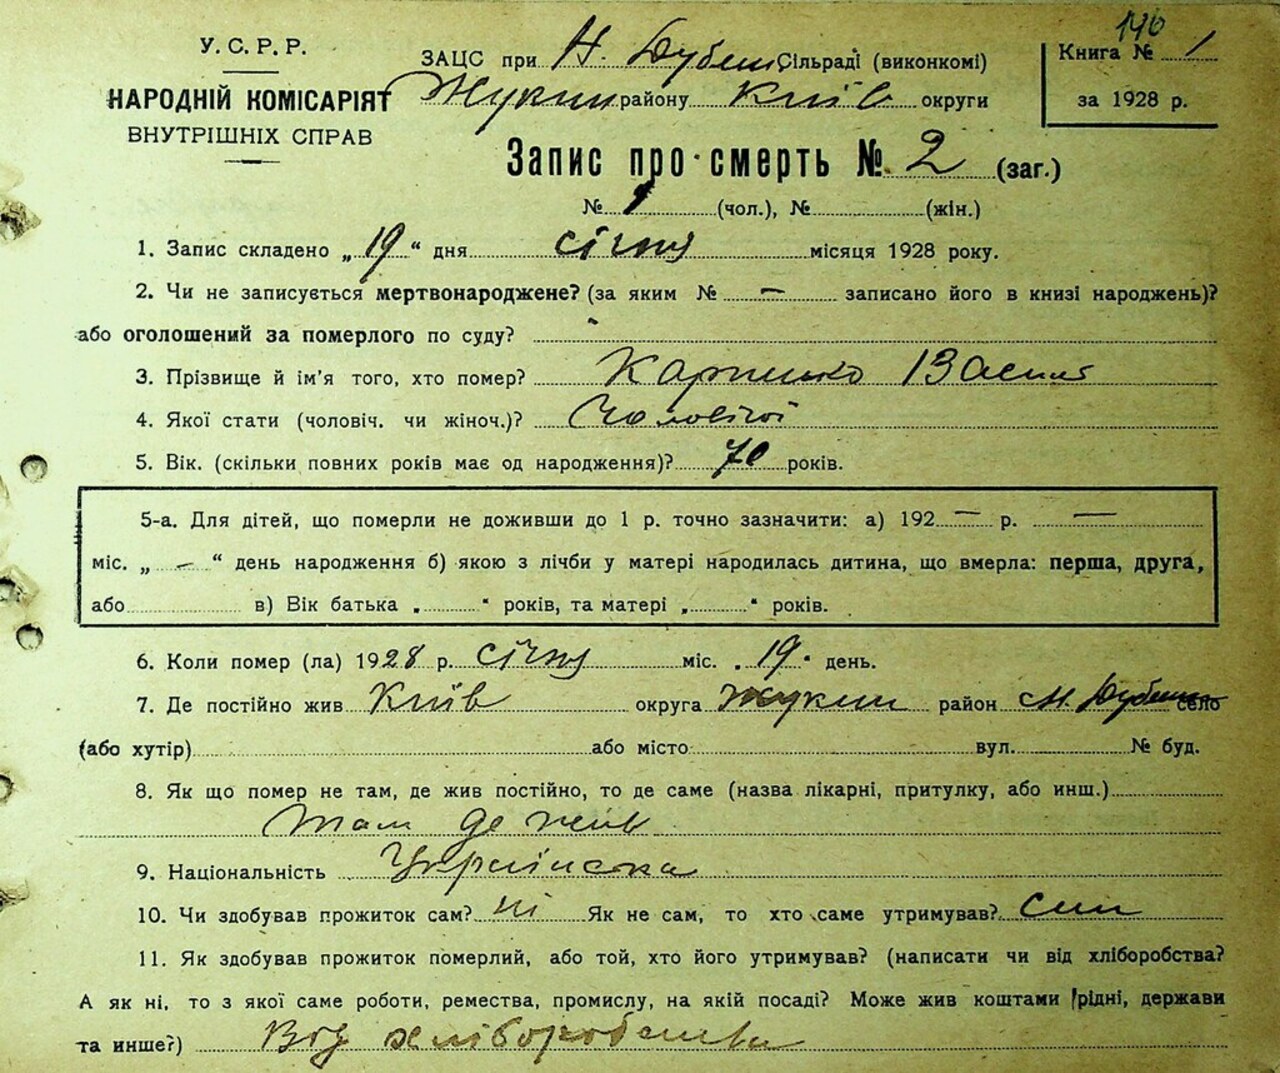 140
У. С. Р. Р.
НАРОДНІЙ КОМІСАРІЯТ
ВНУТРІШНІХ СПРАВ
ЗАЦС при Н. Дубеш. Сільраді (виконкомі)
Жукин району Київ округи
Книга № 1
за 1928 р.
Запис про смерть № 2 (заг.)
№ 1 (чол.), № (жін.)
1. Запис складено „ 19 “ дня січня місяця 1928 року.
2. Чи не записується мертвонароджене? (за яким № — записано його в книзі народжень)?
або оголошений за померлого по суду?
3. Прізвище й ім'я того, хто помер? Карпенко Василь
4. Якої стати (чоловіч. чи жіноч.)? Чоловічої
5. Вік. (скільки повних років має од народження)? 70 років.
5-а. Для дітей, що померли не доживши до 1 р. точно зазначити: а) 192 — р. —
міс. „ — “ день народження б) якою з лічби у матері народилась дитина, що вмерла: перша, друга,
або в) Вік батька „ “ років, та матері „ “ років.
6. Коли помер (ла) 1928 р. січня міс. „ 19 “ день.
7. Де постійно жив Київ округа Жукин район Н. Дубеш село
(або хутір) або місто вул. № буд.
8. Як що помер не там, де жив постійно, то де саме (назва лікарні, притулку, або инш.)
там де жив
9. Національність Українська
10. Чи здобував прожиток сам? ні Як не сам, то хто саме утримував? син
11. Як здобував прожиток померлий, або той, хто його утримував? (написати чи від хліборобства?
А як ні, то з якої саме роботи, ремества, промислу, на якій посаді? Може жив коштами рідні, держави
та инше?) Від хліборобства